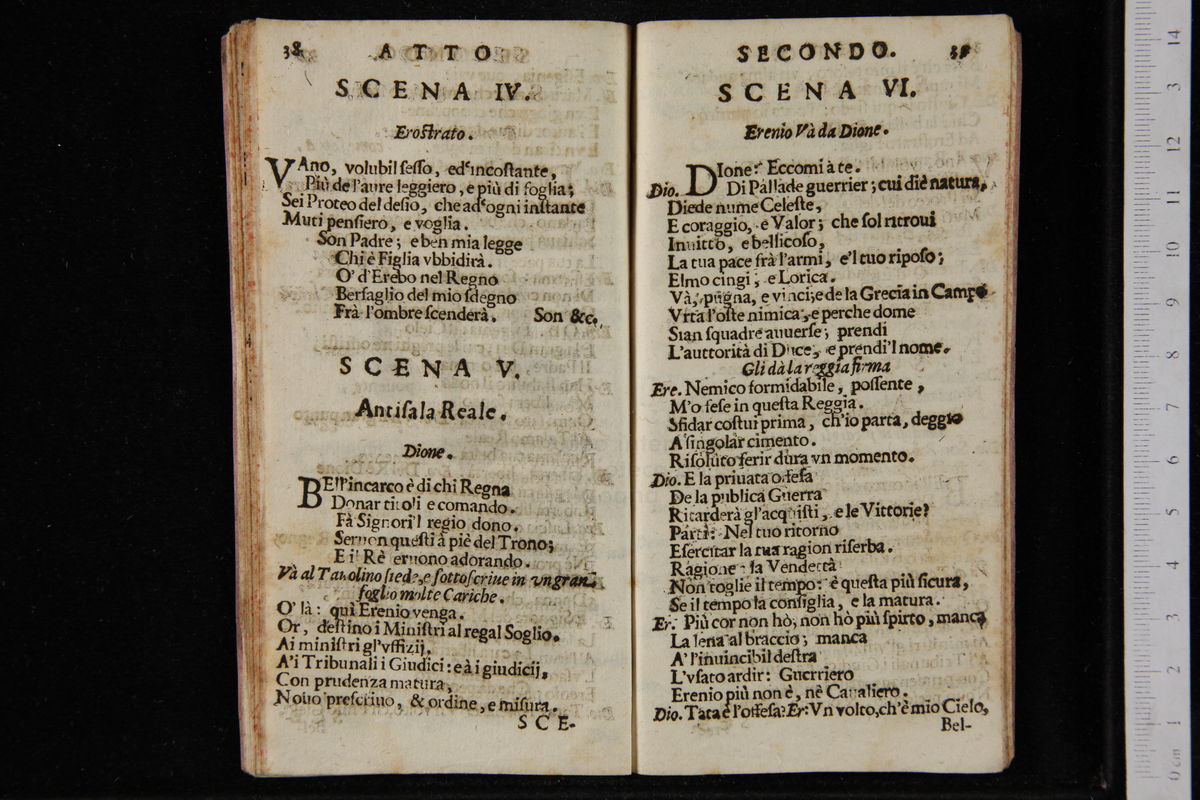 38 ATTO
SCENA IV.
Erostrato.
VAno, volubil sesso, ed incostante,
Più de l'aure leggiero, e più di foglia;
Sei Proteo del desio, che ad ogni instante
Muti pensiero, e voglia.
Son Padre; e ben mia legge
Chi è Figlia vbbidirà.
O' d'Erebo nel Regno
Bersaglio del mio sdegno
Frà l'ombre scenderà. Son &c.
SCENA V.
Antisala Reale.
Dione.
BEll'incarco è di chi Regna
Donar titoli e comando.
Fà Signori'l regio dono.
Seruon questi à piè del Trono;
E il Rè seruono adorando.
Và al Tauolino siede, e sottoscriue in vn gran
foglio molte Cariche.
O' là: qui Erenio venga.
Or, destino i Ministri al regal Soglio.
Ai ministri gl'vffizij,
A'i Tribunali i Giudici: e à i giudicij,
Con prudenza matura,
Nouo prescriuo, & ordine, e misura.
SCE-
SECONDO. 39
SCENA VI.
Erenio Và da Dione.
DIone? Eccomi à te.
Dio. Di Pallade guerrier; cui diè natura,
Diede nume Celeste,
E coraggio, e Valor; che sol ritroui
Inuitto, e bellicoso,
La tua pace frà l'armi, e'l tuo riposo;
Elmo cingi, e Lorica.
Và, pugna, e vinci; e de la Grecia in Campo
Vrta l'oste nimica, e perche dome
Sian squadre auuerse; prendi
L'auttorità di Duce, e prendi'l nome.
Gli dà la reggia firma
Ere. Nemico formidabile, possente,
M'o fese in questa Reggia.
Sfidar costui prima, ch'io parta, deggio
A singolar cimento.
Risoluto ferir dura vn momento.
Dio. E la priuata offesa
De la publica Guerra
Ritarderà gl'acquisti, e le Vittorie?
Parti: Nel tuo ritorno
Esercitar la tua ragion riserba.
Ragione a la Vendetta
Non toglie il tempo: è questa più sicura,
Se il tempo la consiglia, e la matura.
Er. Più cor non hò, non hò più spirto, manca
La lena al braccio; manca
A' l'inuincibil destra
L'vsato ardir: Guerriero
Erenio più non è, nè Caualiero.
Dio. Tāta è l'offesa? Er: Vn volto, ch'è mio Cielo,
Bel-